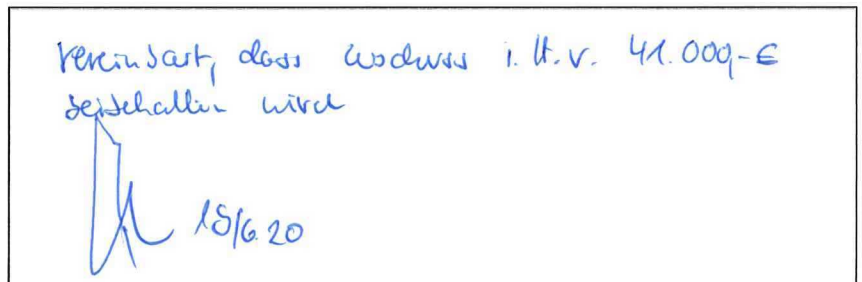 Vereinbart, dass Zuschuss i.H.v. 41.000,-€
beibehalten wird
15/6.20